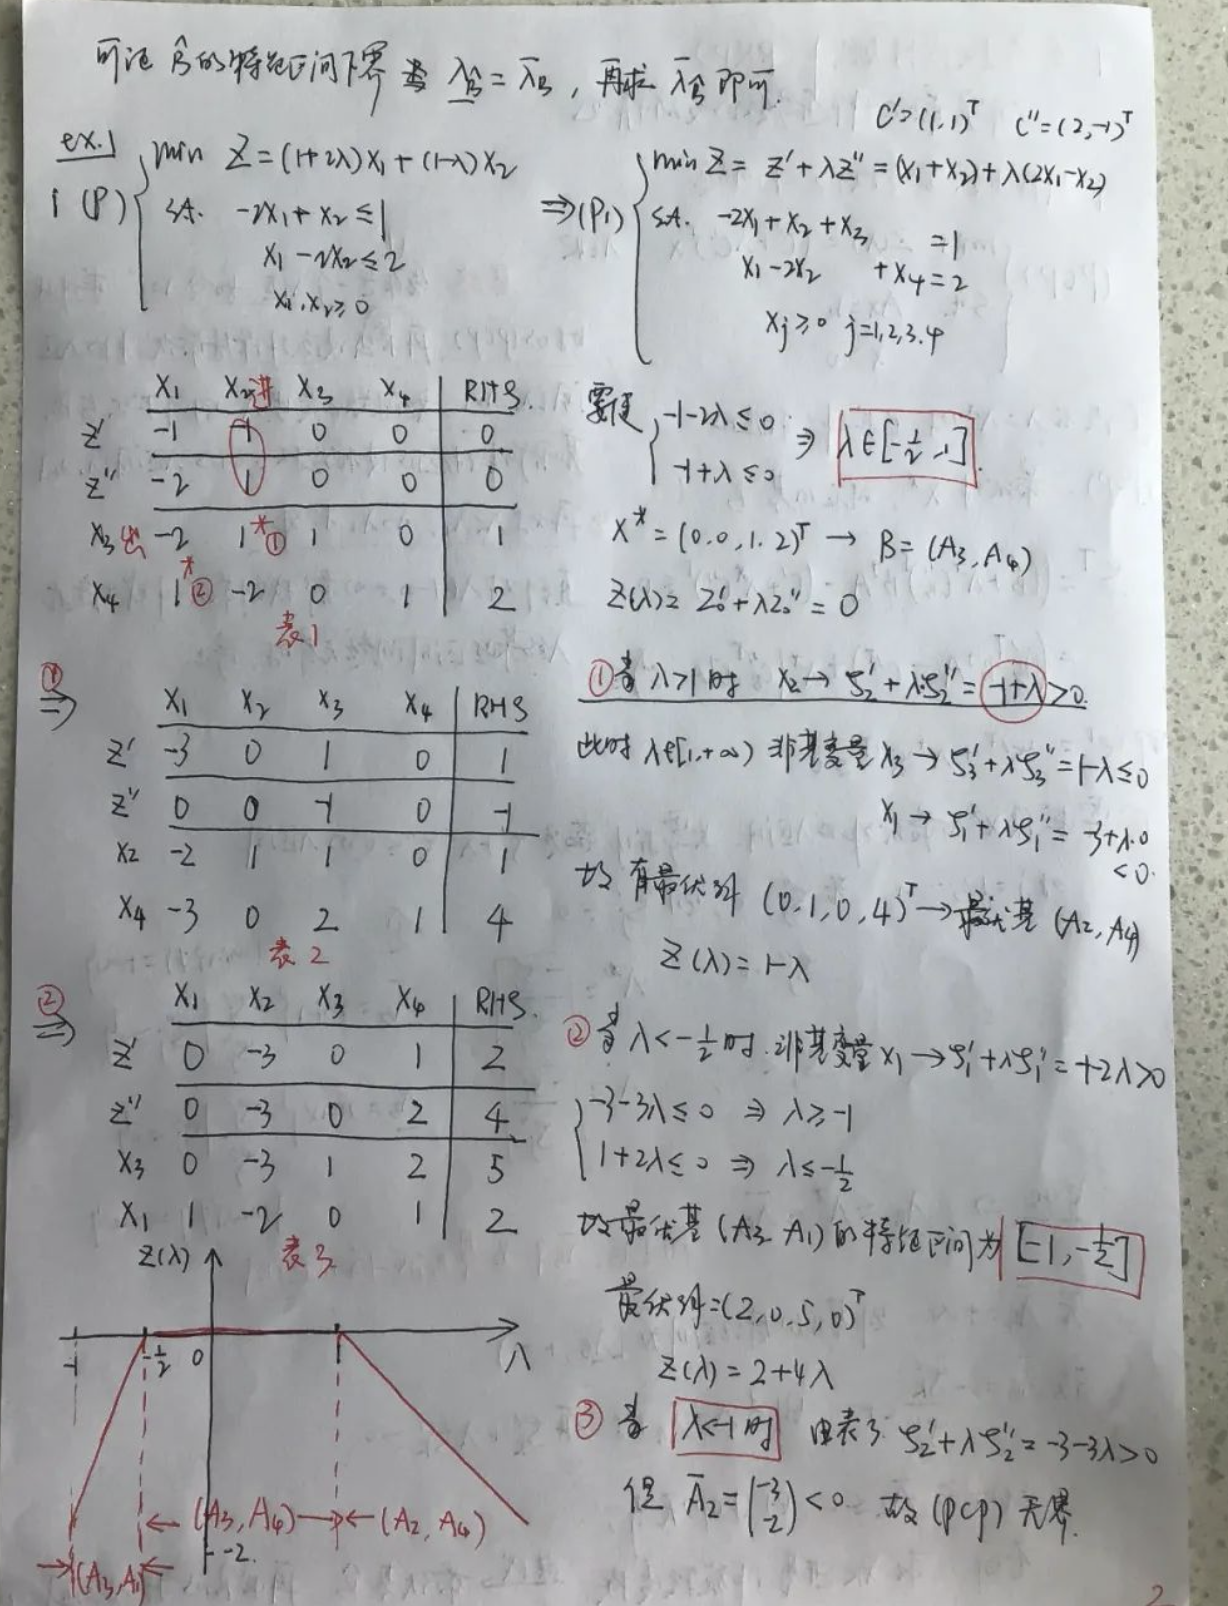 可证 B̂的特征区间下界为 λ_B̂ = λ̄_B , 再求 λ̄_B̂ 即可.
C'=(1,1)ᵀ C''=(2,-1)ᵀ
ex.1
1 (P) { min Z=(1+2λ)x₁+(1-λ)x₂
s.t. -2x₁+x₂≤1
x₁-2x₂≤2
x₁,x₂≥0
⇒(P₁) { min Z = Z'+λZ''=(x₁+x₂)+λ(2x₁-x₂)
s.t. -2x₁+x₂+x₃ =1
x₁-2x₂ +x₄=2
xj≥0 j=1,2,3,4
x₁ x₂进 x₃ x₄ RHS.
Z' -1 -1 0 0 0
Z'' -2 1 0 0 0
x₃出 -2 1*① 1 0 1
x₄ 1*② -2 0 1 2
表1
要使 { -1-2λ≤0
-1+λ≤0
⇒ λ∈[-1/2,1].
X*=(0,0,1,2)ᵀ → B=(A₃,A₄)
Z(λ)=Z₀'+λZ₀''=0
①⇒
x₁ x₂ x₃ x₄ RHS
Z' -3 0 1 0 1
Z'' 0 0 -1 0 -1
x₂ -2 1 1 0 1
x₄ -3 0 2 1 4
表2
①当λ>1时 x₂→ ζ₂'+λζ₂''=-1+λ>0.
此时λ∈[1,+∞) 非基变量x₃→ζ₃'+λζ₃''=1-λ≤0
x₁→ζ₁'+λζ₁''=-3+λ·0
<0.
故有最优解(0,1,0,4)ᵀ→最优基(A₂,A₄)
Z(λ)=1-λ
②⇒
x₁ x₂ x₃ x₄ RHS.
Z' 0 -3 0 1 2
Z'' 0 -3 0 2 4
x₃ 0 -3 1 2 5
x₁ 1 -2 0 1 2
表3
②当λ<-1/2时.非基变量x₁→ζ₁'+λζ₁''=-1-2λ>0
{ -3-3λ≤0 ⇒ λ≥-1
1+2λ≤0 ⇒ λ≤-1/2
故最优基(A₃,A₁)的特征区间为[-1,-1/2]
最优解=(2,0,5,0)ᵀ
Z(λ)=2+4λ
③当 λ<-1时 由表3 ζ₂'+λζ₂''=-3-3λ>0
但 Ā₂=(-3 -2)<0 故(PCP)无界.
Z(λ)
-1 -1/2 0 1 λ
←(A₃,A₄)→ ←(A₂,A₄)
-2.
→(A₃,A₁)←
2